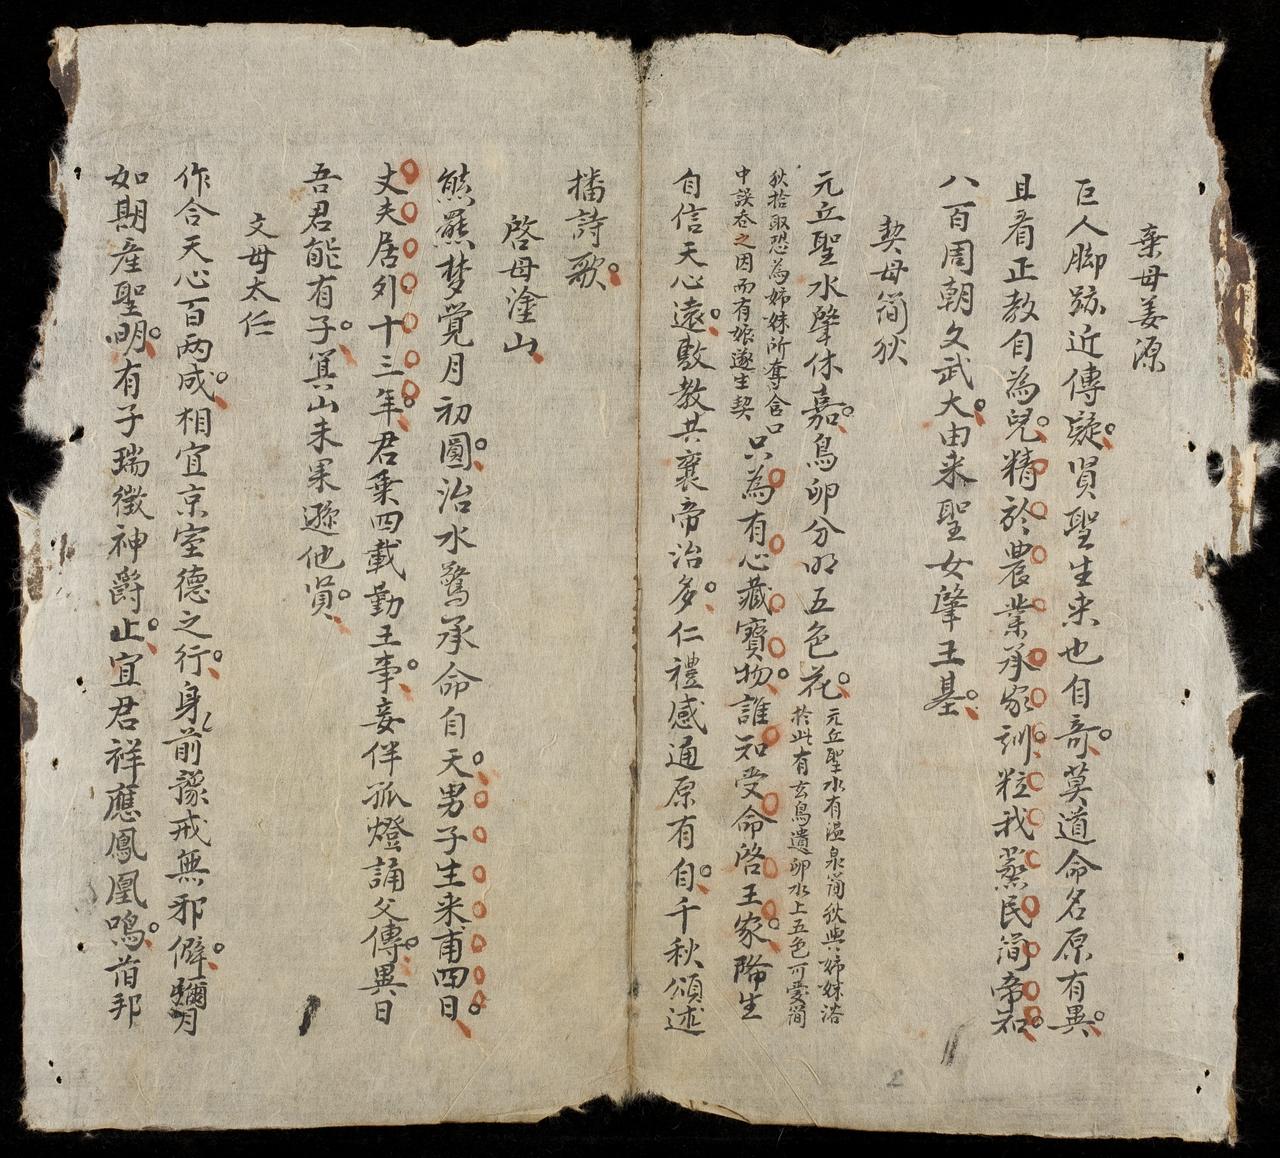 棄母姜源
巨人脚跡近傳疑賢聖生来也自竒莫道命名原有異
且看正教自為兒精於農業承家訓粒我蒸民簡帝知
八百周朝文武大由来聖女肇王基
契母簡狄
元丘聖水肇休嘉鳥卵分明五色花元丘聖水有温泉簡狄與姉妹浴
於此有玄鳥遺卵水上五色可愛簡
狄拾取恐為姉妹所奪含口
中誤吞之因而有娠遂生契只為有心藏寶物誰知受命啓王家隆生
自信天心遠敷教共襄帝治多仁禮感通原有自千秋頌述
播詩歌
啓母塗山
熊羆梦覚月初圓治水驚承命自天男子生来甫四日
丈夫居外十三年君乗四載勤王事妾伴孤燈誦父傳異日
吾君能有子箕山未果遜他賢
文母太仁
作合天心百两成相宜京室德之行身前豫戒無邪僻彌月
如期産聖明有子瑞徵神爵止宜君祥應鳳凰鳴首邦